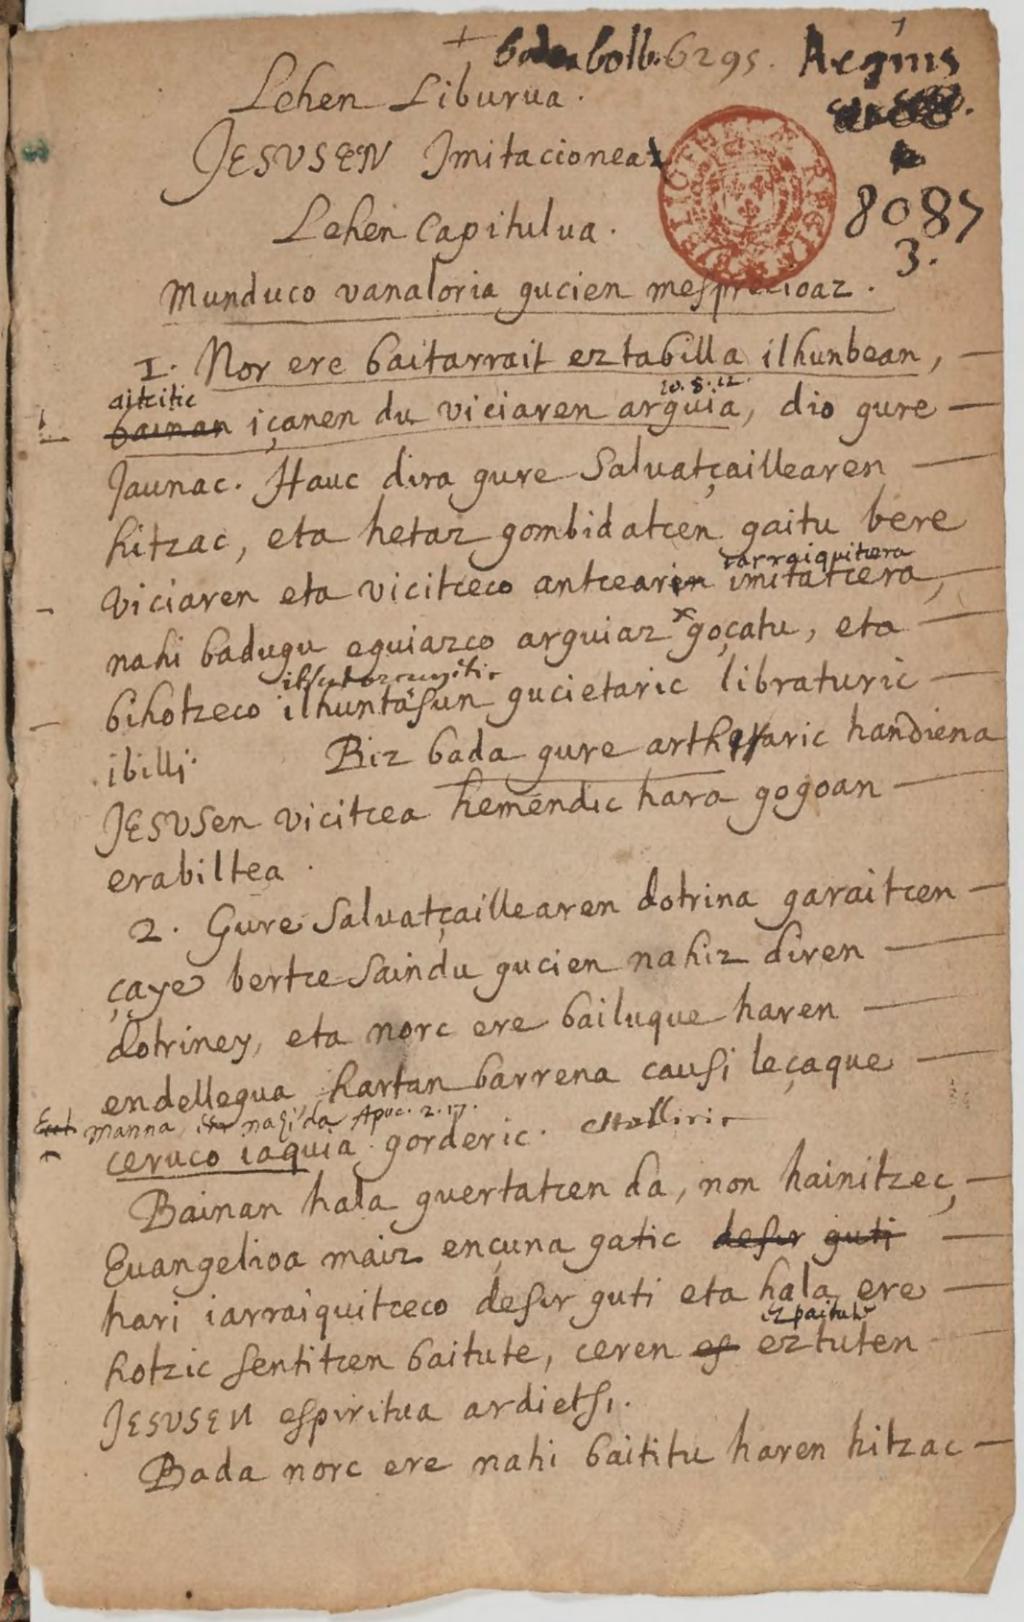 bolb. 6295. Regius
Lehen Liburua.
JESUSEN Imitacionea
8087
3.
Lehen Capitulua.
Munduco vanaloria gucien mespreçioaz.
1. Nor ere baitarrait ez tabilla ilhunbean,
aitcitic
io. 8. 12.
bainan içanen du viciaren arguia, dio gure
Jaunac. Hauc dira gure Salvatçaillearen
hitzac, eta hetaz gombidatcen gaitu bere
iarraiquitcera
viciaren eta vicitceco antcearin imitatcera,
nahi badugu eguiazco arguiaz goçatu, eta
bihotzeco ilhuntasun gucietaric libraturic
ibilli. Biz bada gure arthetaric handiena
JESUSen vicitcea hemendic hara gogoan
erabiltea.
2. Gure Salvatçaillearen dotrina garaitcen
çaye bertce Saindu gucien nahiz diren
dotriney, eta norc ere bailuque haren
endellegua, hartan barrena causi leçaque
manna Apoc. 2. 17.
ceruco iaquia gorderic.
Bainan hala guertatcen da, non hainitzec,
Euangelioa maiz ençuna gatic desir guti
hari iarraiquitceco desir guti eta hala ere
ezpaitute
hotzic sentitcen baitute, ceren es eztuten
JESUSEN espiritua ardietsi.
Bada norc ere nahi baititu haren hitzac